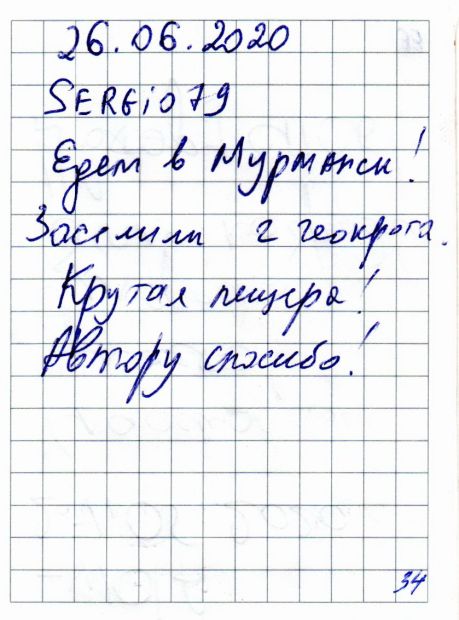 26.06.2020
SERGIO79
Едем в Мурманск!
Заселили 2 геокрота.
Крутая пещера!
Автору спасибо!
34